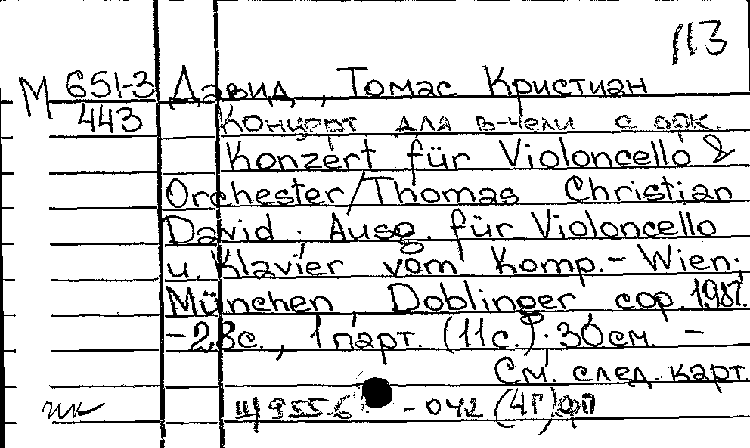 113
М 651-3 Давид, Томас Кристиан
443 Концерт для в-чели с орк.
Konzert für Violoncello &
Orchester / Thomas Christian
David. Ausg. für Violoncello
u. Klavier vom Komp. - Wien;
München, Doblinger, cop. 1981.
- 28 с., 1 парт. (11 с.); 30 см. -
См. след. карт.
Щ 955.6 - 042 (4Г) ФП